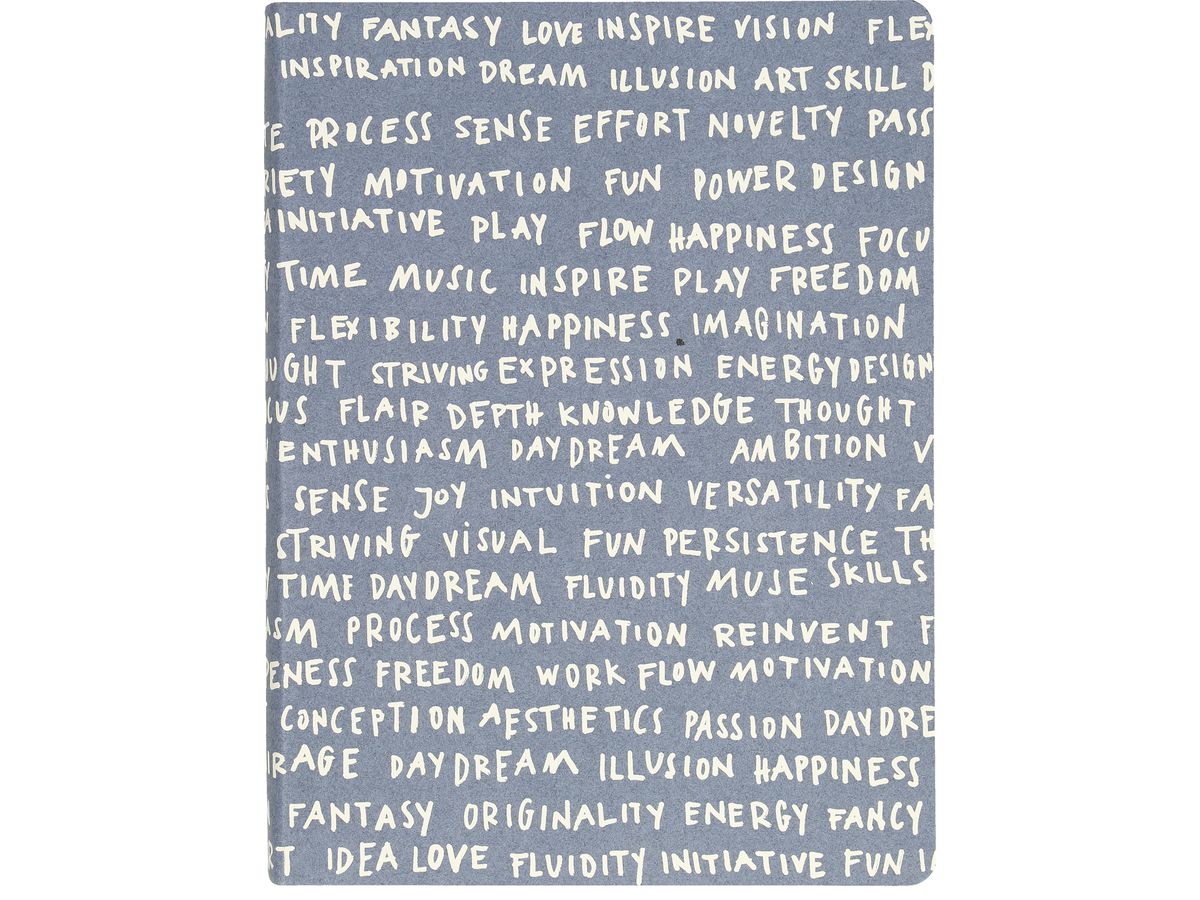 ALITY FANTASY LOVE INSPIRE VISION FLEX
INSPIRATION DREAM ILLUSION ART SKILL D
TE PROCESS SENSE EFFORT NOVELTY PASS
RIETY MOTIVATION FUN POWER DESIGN
INITIATIVE PLAY FLOW HAPPINESS FOCU
Y TIME MUSIC INSPIRE PLAY FREEDOM
FLEXIBILITY HAPPINESS IMAGINATION
UGHT STRIVING EXPRESSION ENERGY DESIGN
CUS FLAIR DEPTH KNOWLEDGE THOUGHT
ENTHUSIASM DAYDREAM AMBITION V
SENSE JOY INTUITION VERSATILITY FA
STRIVING VISUAL FUN PERSISTENCE TH
Y TIME DAYDREAM FLUIDITY MUSE SKILLS
ASM PROCESS MOTIVATION REINVENT F
ENESS FREEDOM WORK FLOW MOTIVATION
CONCEPTION AESTHETICS PASSION DAYDRE
RAGE DAYDREAM ILLUSION HAPPINESS
FANTASY ORIGINALITY ENERGY FANCY
RT IDEA LOVE FLUIDITY INITIATIVE FUN